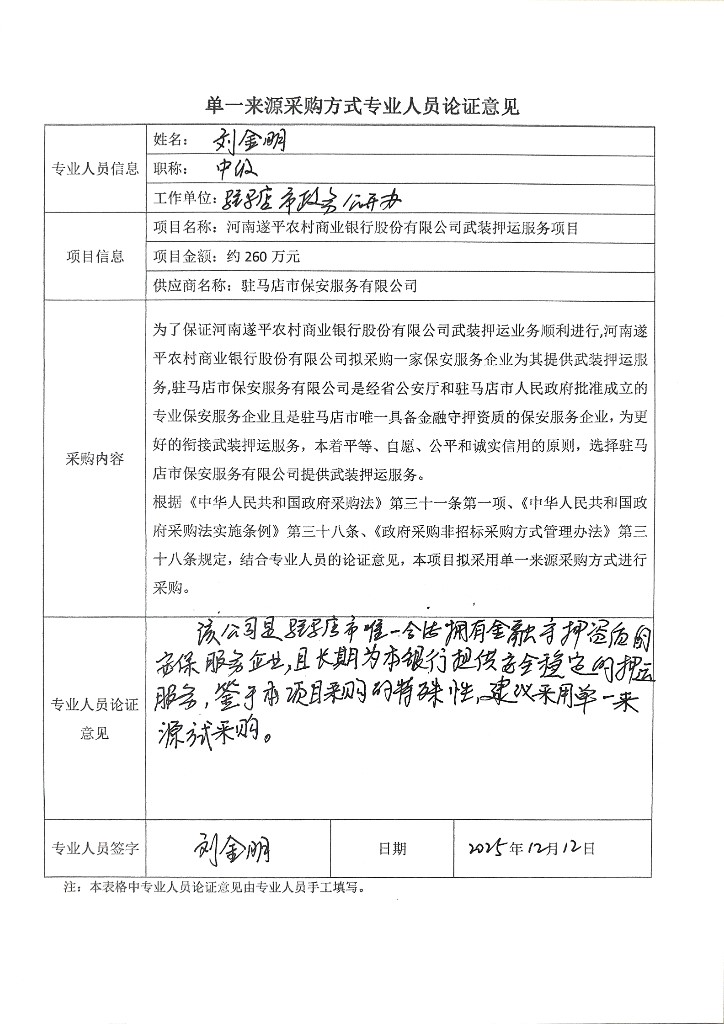 单一来源采购方式专业人员论证意见
专业人员信息
姓名： 刘金明
职称： 中级
工作单位：驻马店市政务公开办
项目信息
项目名称：河南遂平农村商业银行股份有限公司武装押运服务项目
项目金额：约260万元
供应商名称：驻马店市保安服务有限公司
采购内容
为了保证河南遂平农村商业银行股份有限公司武装押运业务顺利进行,河南遂
平农村商业银行股份有限公司拟采购一家保安服务企业为其提供武装押运服
务,驻马店市保安服务有限公司是经省公安厅和驻马店市人民政府批准成立的
专业保安服务企业且是驻马店市唯一具备金融守押资质的保安服务企业，为更
好的衔接武装押运服务，本着平等、自愿、公平和诚实信用的原则，选择驻马
店市保安服务有限公司提供武装押运服务。
根据《中华人民共和国政府采购法》第三十一条第一项、《中华人民共和国政
府采购法实施条例》第三十八条、《政府采购非招标采购方式管理办法》第三
十八条规定，结合专业人员的论证意见，本项目拟采用单一来源采购方式进行
采购。
专业人员论证
意见
该公司是驻马店市唯一合法拥有金融守押资质的
安保服务企业,且长期为本银行提供安全稳定的押运
服务，鉴于本项目采购的特殊性,建议采用单一来
源方式采购。
专业人员签字
刘金明
日期
2025年12月12日
注：本表格中专业人员论证意见由专业人员手工填写。